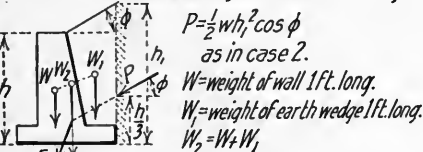 P=½wh₁²cos ϕ
as in case 2.
W=weight of wall 1ft. long.
W₁=weight of earth wedge 1ft. long.
W₂=W+W₁
ϕ
h
h₁
W
W₂
W₁
P
ϕ
h/3